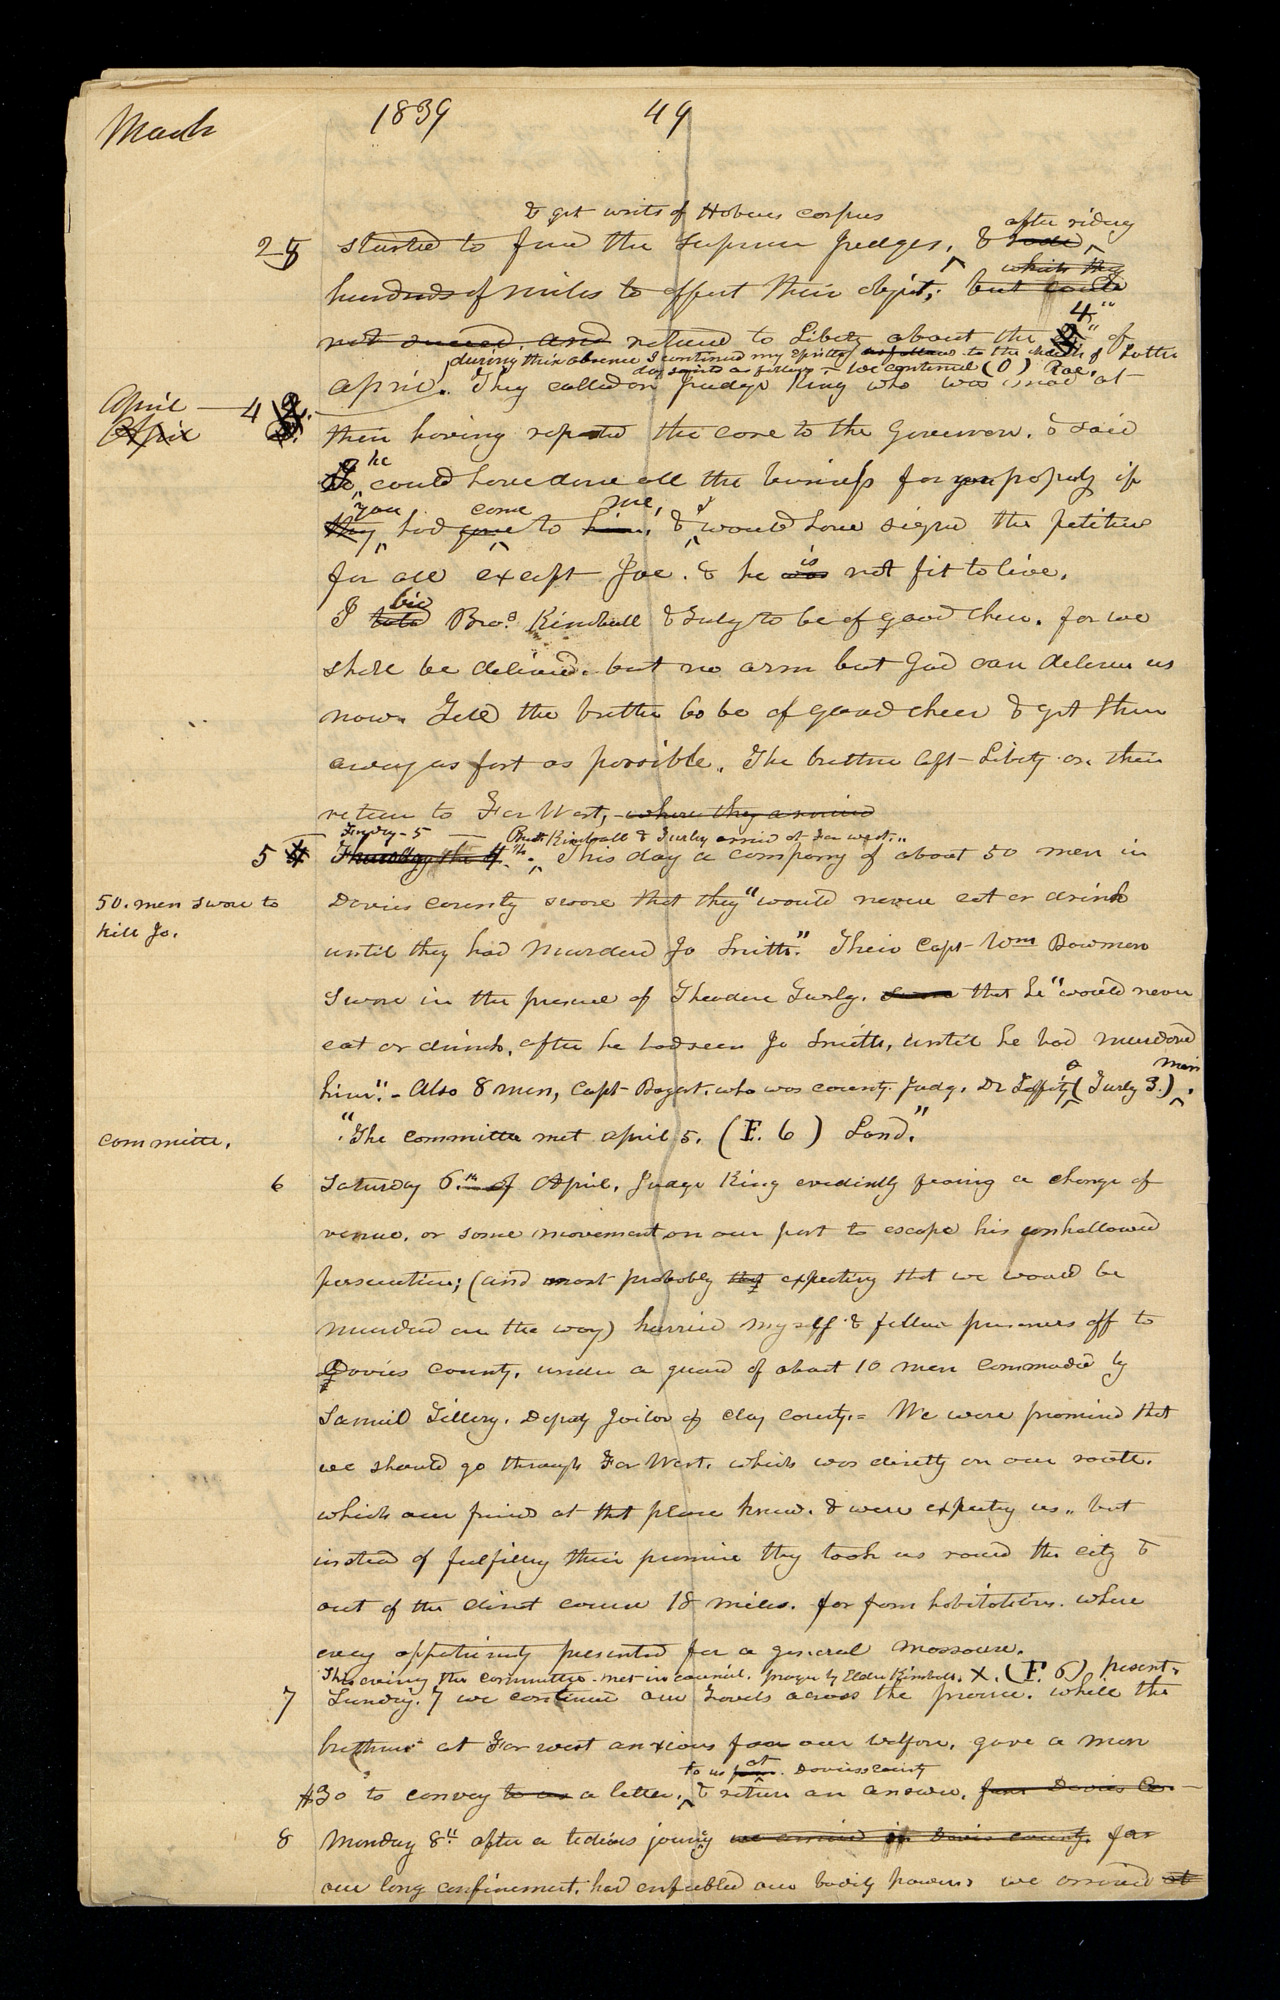 March 1839 49
to get writs of Habeus corpus after riding
25 started to find the supreme Judges, & rode
which they
hundreds of miles to effect their object; but could
4"
not succeed. and returned to Liberty about the of
during this absence I continued my epistle as follows to the church of Latter
day saints as follows - we continued (O) Roe.
April. They called on Judge King who was mad at
April 4
April
their having reported the case to the Governor. & said
he
could have done all the business for you properly if
you come me, I
they had gone to him. & would have signed the petition
is
for all except Joe. & he was not fit to live.
bid
I told Bros. Kimball & Turly to be of good cheer. for we
shall be delivered. but no arm but God can deliver us
now. Tell the brethren to be of good cheer & get them
away as fast as possible. The brethren left Liberty on their
return to Far West, where they arrived
Friday - 5 Breth Kimball & Turley arrived at Far west.
5 Thursday the 4th. This day a company of about 50 men in
50. men swore to
kill Jo.
Davies county swore that they "would never eat or drink
until they had Murdered Jo Smith." Their Capt Wm Bowman
swore in the presence of Theodore Turly. swore that he "would never
eat or drink, after he had seen Jo Smith, until he had murdered
men
him". - Also 8 men, Capt Bogart. who was county Judge, Dr Laffity & (Turly 3.)
committee.
"The committee met april 5. (F. 6) Land."
6 Saturday 6.th of April. Judge King evidently fearing a change of
venue. or some movement on our part to escape his unhallowed
persecution; (and most probably they expecting that we would be
murdered on the way) hurried myself & fellow prisoners off to
Davies county. under a guard of about 10 men commanded by
Samuel Tillery. Deputy Jailor of Clay County. = We were promised that
we should go through Far West. which was directly on our route.
which our friends at that place knew. & were expecting us, but
instead of fulfilling their promise they took us round the city &
out of the direct course 18 miles. far from habitations. where
every opportunity presented for a general massacre.
This evening the committee met in council. prayer by Elder Kimball. X. (F. 6) present.
7 Sunday. 7 we continued our travels across the prairie. while the
brethren at Far west anxious for our welfare, gave a man
to us at from Daviess county
$30 to convey to us a letter, & return an answer. from Davies Co.
8 Monday 8th after a tedious journey we arrived in Davis county. for
our long confinement, had enfeebled our bodily powers we arrived at